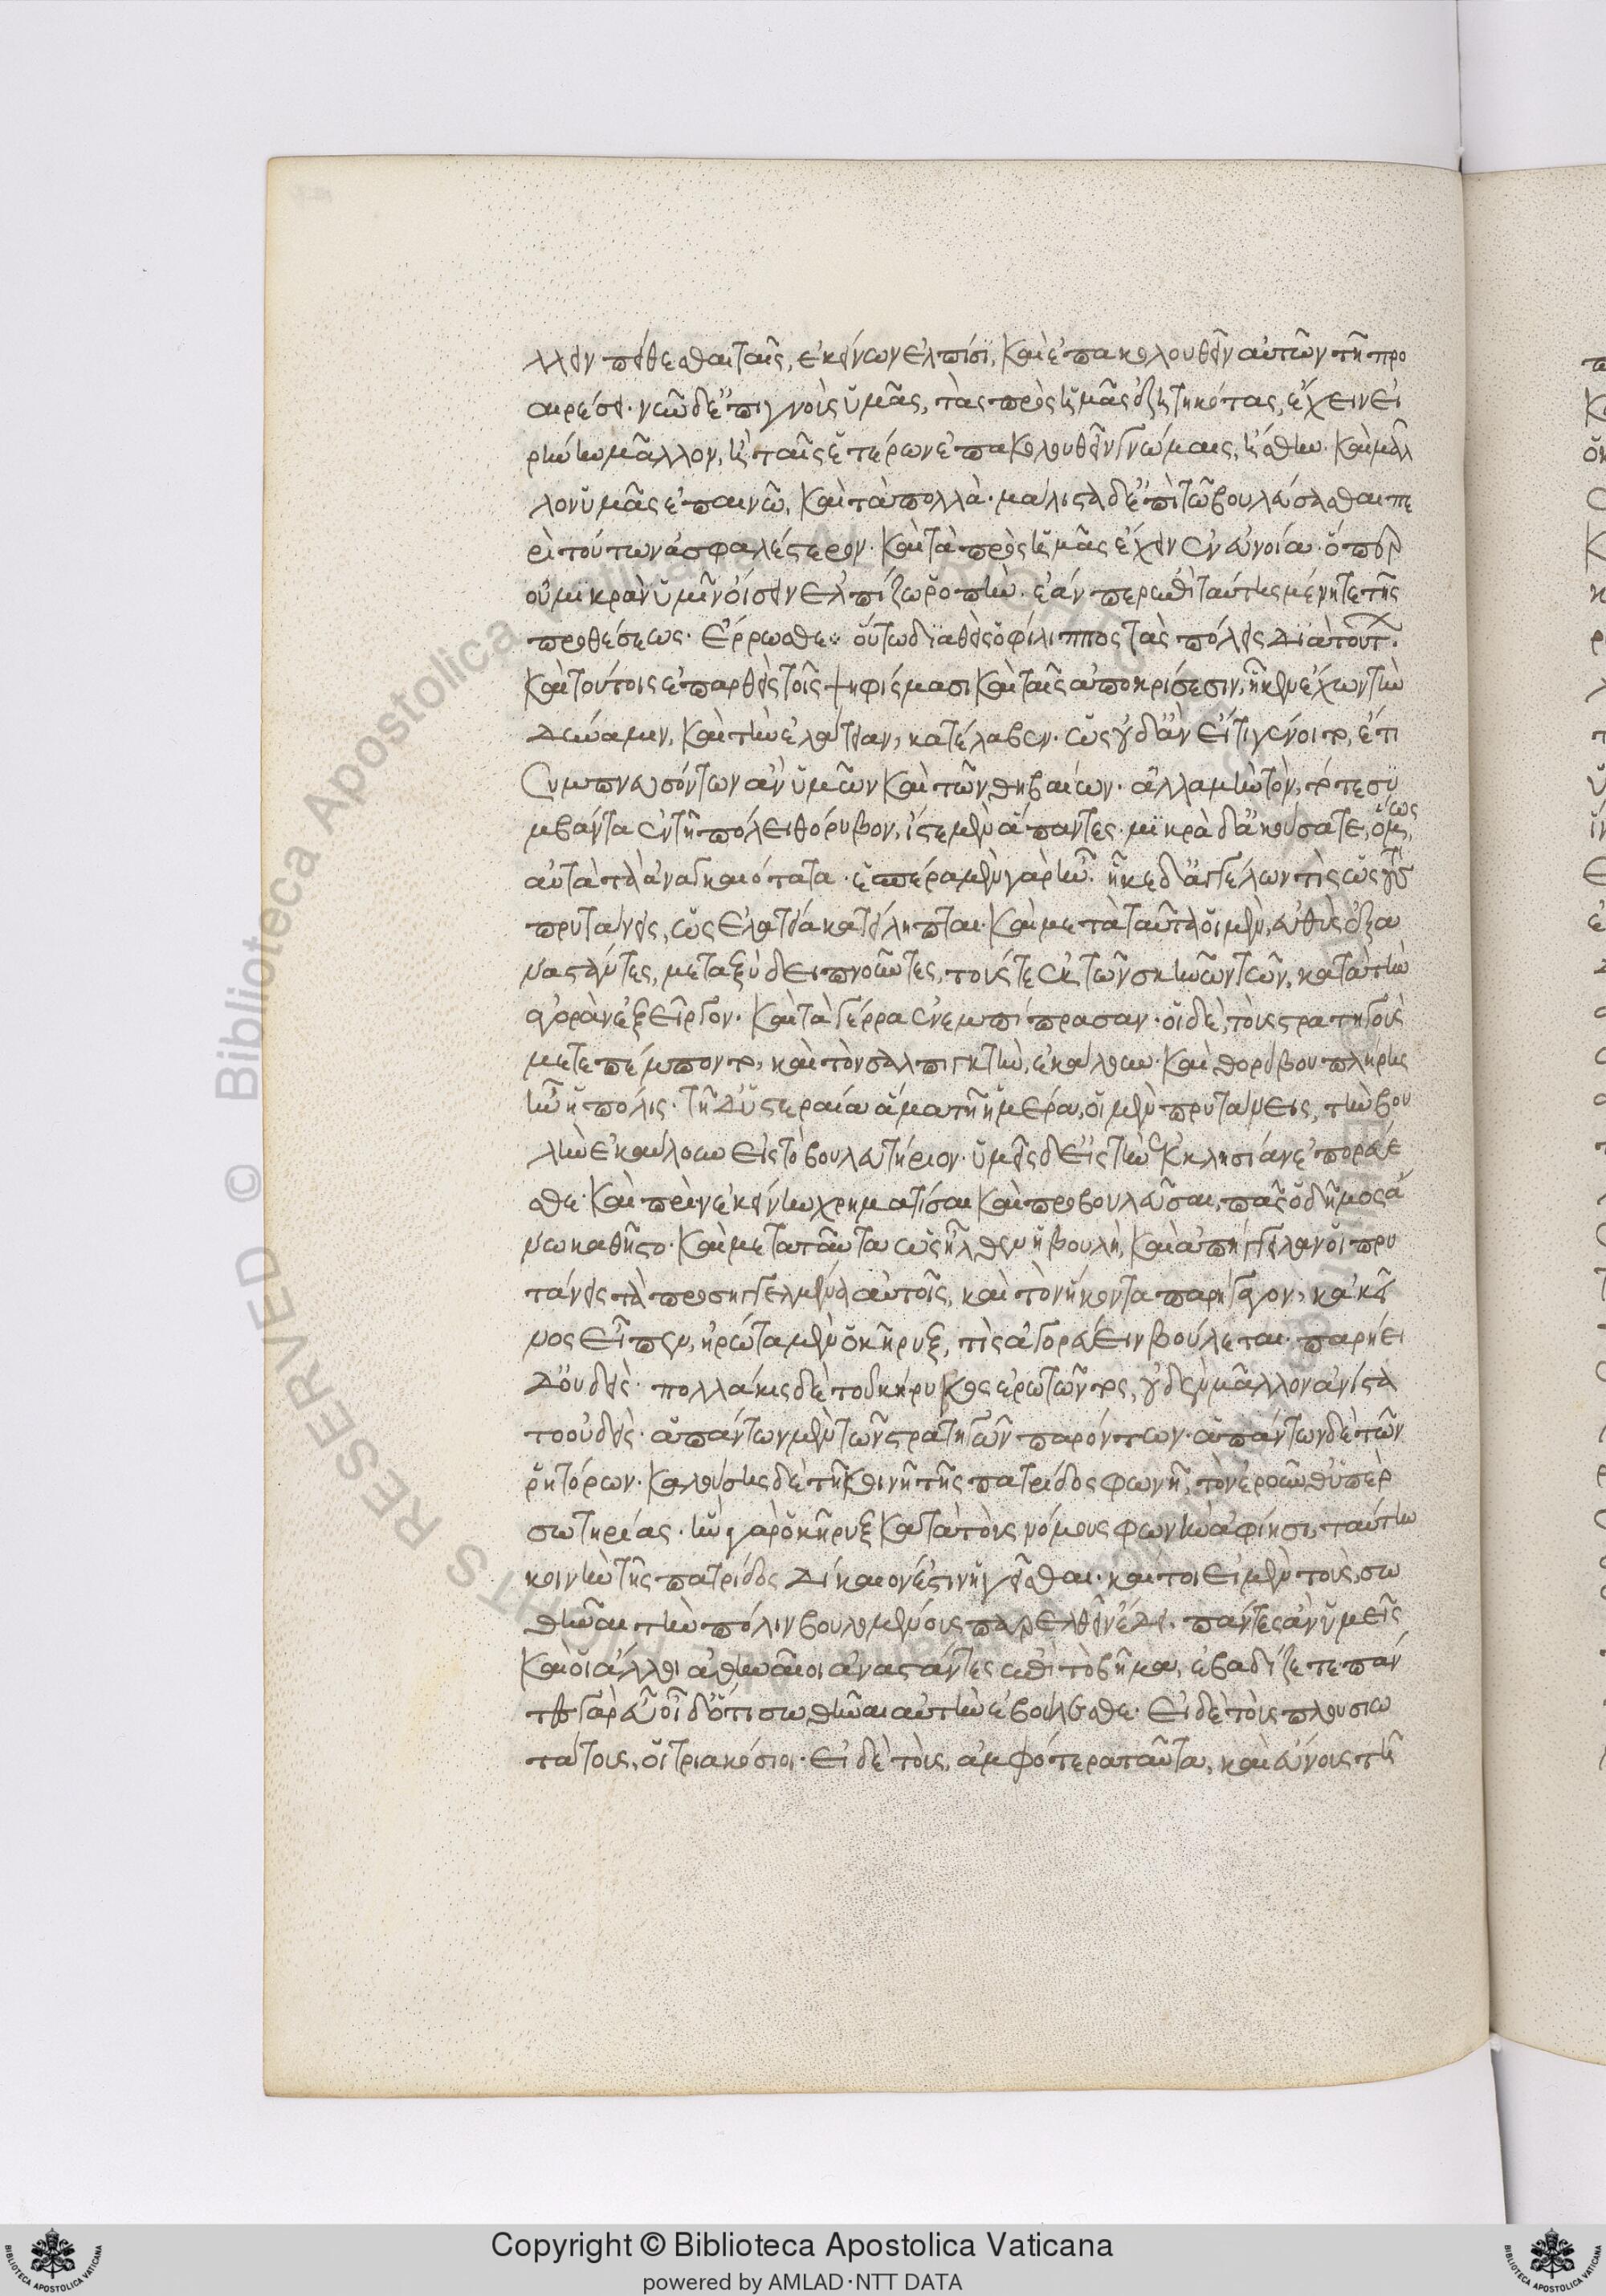 λλειν πείθεσθαι ταῖς ἐκείνων ἐλπίσι, καὶ ἐπακολουθεῖν αὐτῶν τῇ προ
αιρέσει. νῦν δ' ἐπιγνοὺς ὑμᾶς, τὰς πρὸς ἡμᾶς ἐζητηκότας, ἔχειν εἰ
ρήνην μᾶλλον, ἢ ταῖς ἑτέρων ἐπακολουθεῖν γνώμαις, ἥσθην. καὶ μᾶλ
λον ὑμᾶς ἐπαινῶ, κατὰ πολλά. μάλιστα δ' ἐπὶ τῷ βουλεύσασθαι πε
ρὶ τούτων ἀσφαλέστερον. καὶ τὰ πρὸς ἡμᾶς ἔχειν ἐν εὐνοίᾳ. ὅπερ
οὐ μικρὰν ὑμῖν οἴσειν ἐλπίζω ῥοπήν. ἐάν περ ἐπὶ ταύτης μένητε τῆς
προθέσεως. ἔρρωσθε. οὕτω διαθεὶς ὁ φίλιππος τὰς πόλεις διὰ τούτ.
καὶ τούτοις ἐπαρθεὶς τοῖς ψηφίσμασι καὶ ταῖς ἀποκρίσεσιν, ἧκεν ἔχων τὴν
δύναμιν, καὶ τὴν ἐλάτειαν, κατέλαβεν. ὡς οὐδ' ἂν εἴ τι γένοιτο, ἔτι
συμπνευσόντων ἂν ὑμῶν καὶ τῶν θηβαίων. ἀλλὰ μὴν τὸν, τότε συ
μβάντα ἐν τῇ πόλει θόρυβον, ἴστε μὲν ἅπαντες. μικρὰ δ' ἀκούσατε, ὅμως,
αὐτὰ τὰ ἀναγκαιότατα. ἑσπέρα μὲν γὰρ ἦν. ἧκε δ' ἀγγέλων τις ὡς τοὺς
πρυτάνεις, ὡς ἐλάτεια κατείληπται. καὶ μετὰ ταῦτα οἱ μὲν, εὐθὺς ἐξα
ναστάντες, μεταξὺ δειπνοῦντες, τούς τε ἐκ τῶν σκηνῶν τῶν, κατὰ τὴν
ἀγορὰν ἐξεῖργον. καὶ τὰ γέρρα ἐνεπίπρασαν. οἱ δὲ, τοὺς στρατηγοὺς
μετεπέμποντο, καὶ τὸν σαλπιγκτὴν, ἐκάλουν. καὶ θορύβου πλήρης
ἦν ἡ πόλις. τῇ δ' ὑστεραίᾳ ἅμα τῇ ἡμέρᾳ, οἱ μὲν πρυτάνεις, τὴν βου
λὴν ἐκάλουν εἰς τὸ βουλευτήριον. ὑμεῖς δ' εἰς τὴν ἐκκλησίαν ἐπορεύε
σθε. καὶ πρὶν ἐκείνην χρηματίσαι καὶ προβουλεῦσαι, πᾶς ὁ δῆμος ἄ
νω καθῆστο. καὶ μετὰ ταῦτα ὡς ἦλθεν ἡ βουλὴ, καὶ ἀπήγγειλαν οἱ πρυ
τάνεις τὰ προσηγγελμένα αὐτοῖς, καὶ τὸν ἥκοντα παρήγαγον, κἀκεῖ
νος εἶπεν, ἠρώτα μὲν ὁ κῆρυξ, τίς ἀγορεύειν βούλεται. παρῄει
δ' οὐδείς. πολλάκις δὲ τοῦ κήρυκος ἐρωτῶντος, οὐδὲν μᾶλλον ἀνίστα
το οὐδείς. ἁπάντων μὲν τῶν στρατηγῶν παρόντων. ἁπάντων δὲ τῶν
ῥητόρων. καλούσης δὲ τῇ κοινῇ τῆς πατρίδος φωνῇ, τὸν ἐροῦνθ' ὑπὲρ
σωτηρίας. ἣν γὰρ ὁ κῆρυξ κατὰ τοὺς νόμους φωνὴν ἀφίησι, ταύτην
κοινὴν τῆς πατρίδος δίκαιόν ἐστιν ἡγεῖσθαι. καίτοι εἰ μὲν τοὺς, σω
θῆναι τὴν πόλιν βουλομένους παρελθεῖν ἔδει. πάντες ἂν ὑμεῖς
καὶ οἱ ἄλλοι ἀθηναῖοι ἀναστάντες ἐπὶ τὸ βῆμα, ἐβαδίζετε. πάν
τες γὰρ εὖ οἶδ' ὅτι σωθῆναι αὐτὴν ἐβούλεσθε. εἰ δὲ τοὺς πλουσιω
τάτους, οἱ τριακόσιοι. εἰ δὲ τοὺς, ἀμφότερα ταῦτα, καὶ εὔνους τῇ
Copyright © Biblioteca Apostolica Vaticana
powered by AMLAD·NTT DATA